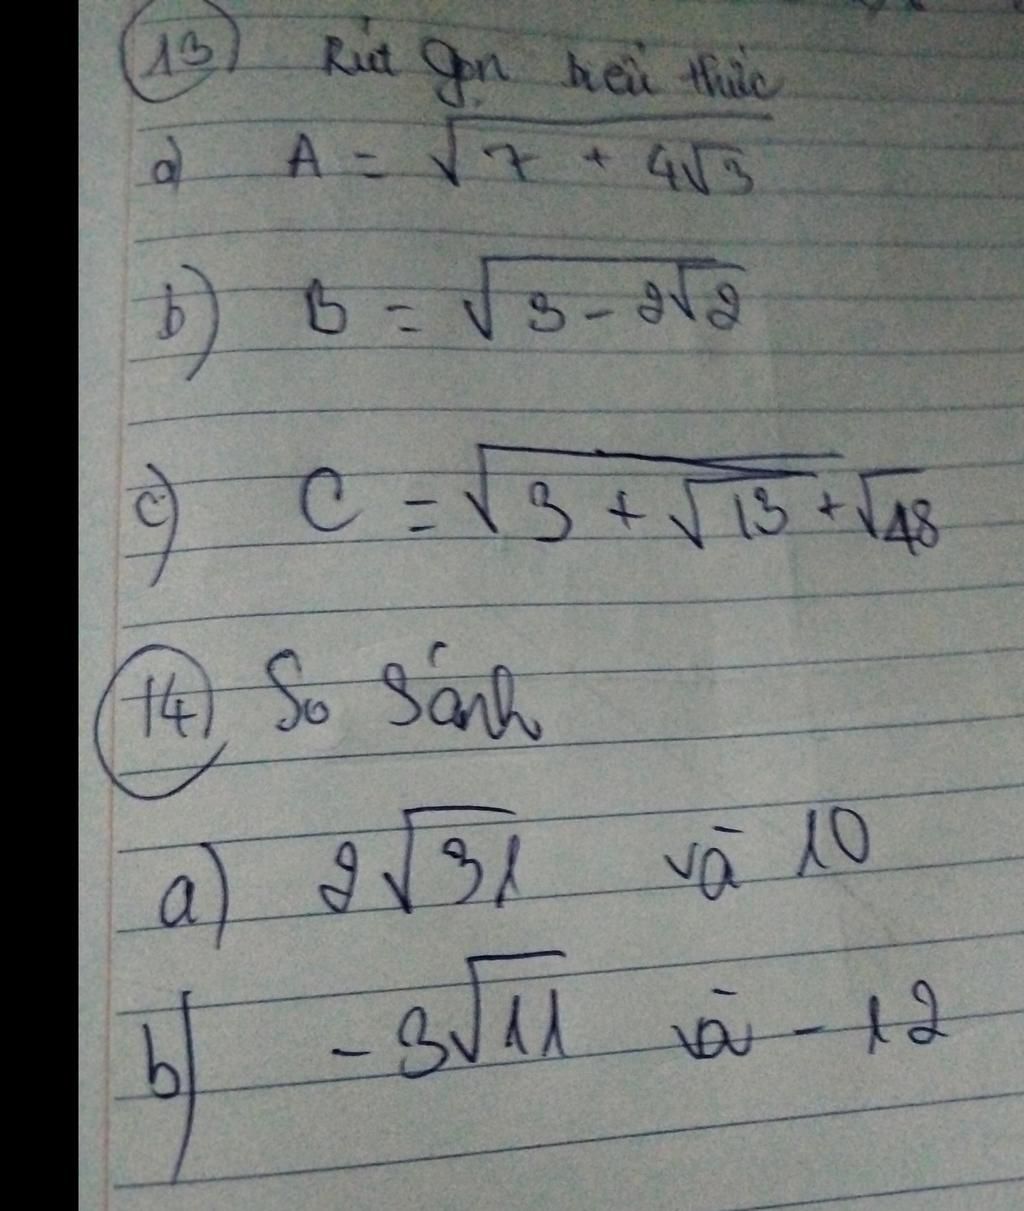 13 Rút gọn biểu thức
a) A = √(7 + 4√3)
b) B = √(3 - 2√2)
c) C = √(3 + √13) + √48
14 So sánh
a) 2√31 và 10
b) -3√11 và -12